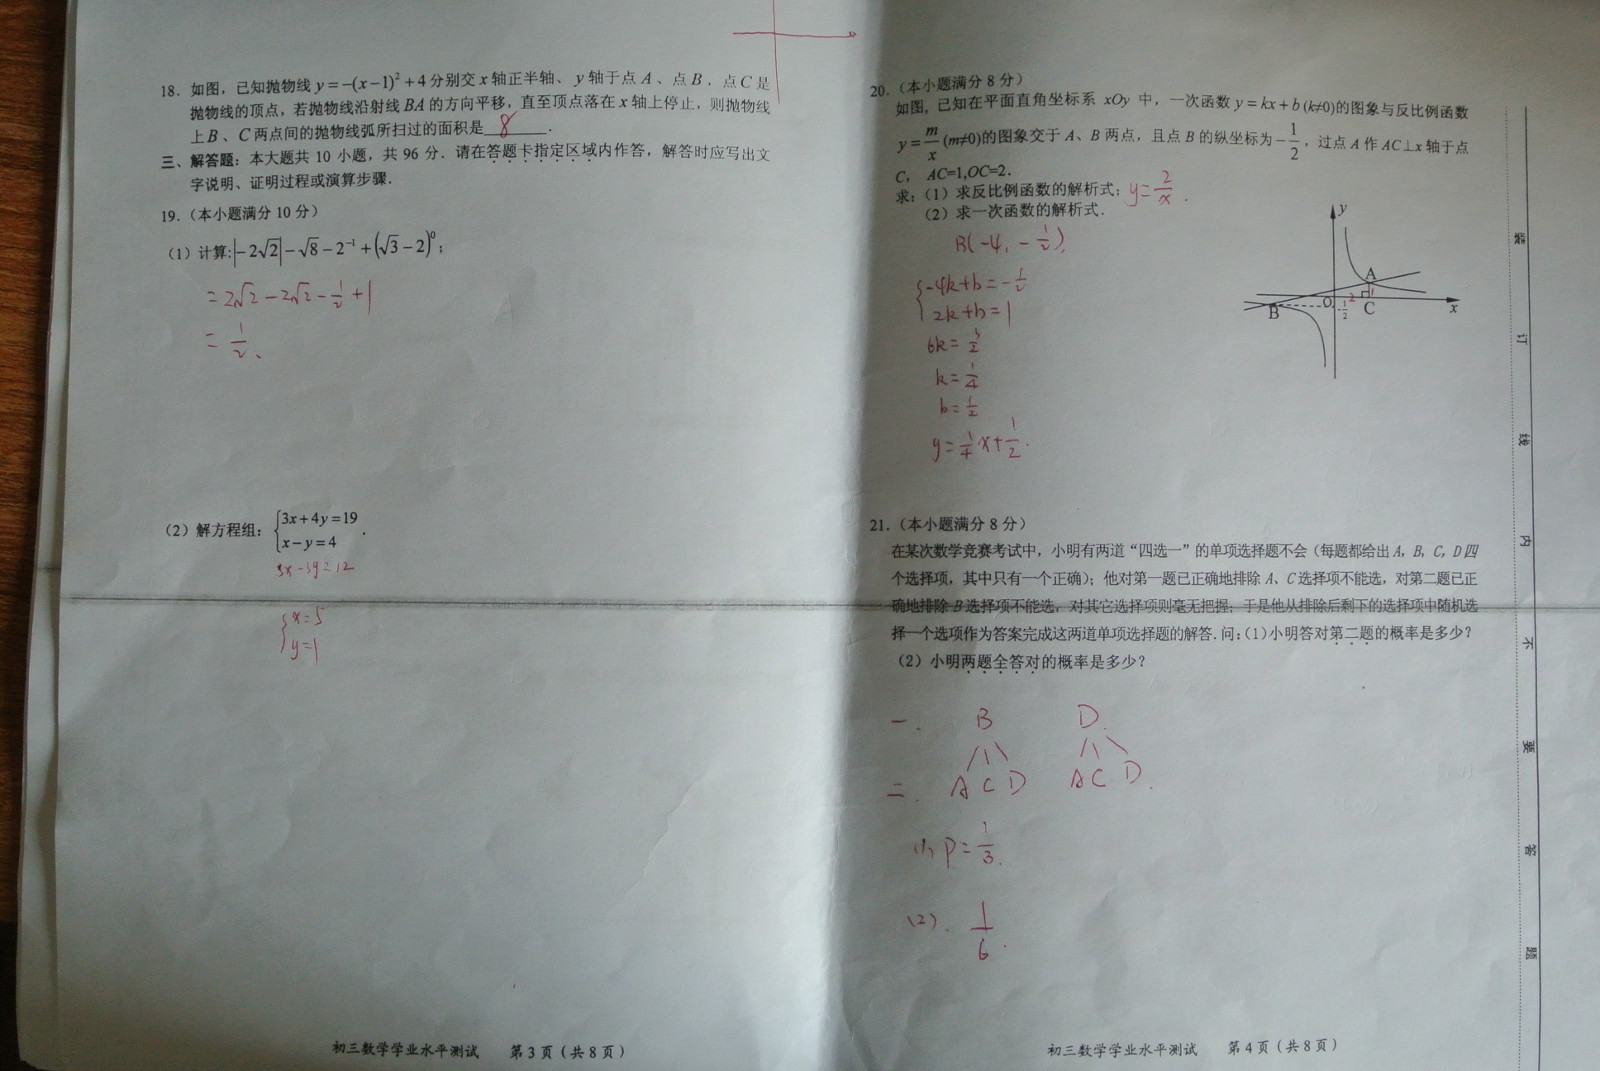 18．如图，已知抛物线 y = −(x−1)² + 4 分别交 x 轴正半轴、y 轴于点 A、点 B，点 C 是
抛物线的顶点，若抛物线沿射线 BA 的方向平移，直至顶点落在 x 轴上停止，则抛物线
上 B、C 两点间的抛物线弧所扫过的面积是 8 ．
三、解答题：本大题共 10 小题，共 96 分．请在答题卡指定区域内作答，解答时应写出文
字说明、证明过程或演算步骤．
19．（本小题满分 10 分）
（1）计算:|−2√2| − √8 − 2⁻¹ + (√3 − 2)⁰；
= 2√2 − 2√2 − 1/2 + 1
= 1/2、
（2）解方程组：{3x + 4y = 19
x − y = 4 ．
3x − 3y = 12
{x = 5
y = 1
初三数学学业水平测试 第 3 页（共 8 页）
20．（本小题满分 8 分）
如图，已知在平面直角坐标系 xOy 中，一次函数 y = kx + b (k≠0)的图象与反比例函数
y = m/x (m≠0)的图象交于 A、B 两点，且点 B 的纵坐标为 −1/2，过点 A 作 AC⊥x 轴于点
C， AC=1,OC=2．
求：（1）求反比例函数的解析式； y = 2/x .
（2）求一次函数的解析式．
B(−4, −1/2).
{−4k + b = −1/2
2k + b = 1
6k = 3/2
k = 1/4
b = 1/2
y = 1/4 x + 1/2 .
y
A
2
1
O
B
1/2
C
x
21．（本小题满分 8 分）
在某次数学竞赛考试中，小明有两道“四选一”的单项选择题不会（每题都给出 A，B，C，D 四
个选择项，其中只有一个正确）；他对第一题已正确地排除 A、C 选择项不能选，对第二题已正
确地排除 B 选择项不能选，对其它选择项则毫无把握；于是他从排除后剩下的选择项中随机选
择一个选项作为答案完成这两道单项选择题的解答．问：（1）小明答对第二题的概率是多少？
（2）小明两题全答对的概率是多少？
一． B D．
二． A C D A C D．
(1) P = 1/3.
(2). 1/6 .
初三数学学业水平测试 第 4 页（共 8 页）
装
订
线
内
不
要
答
题